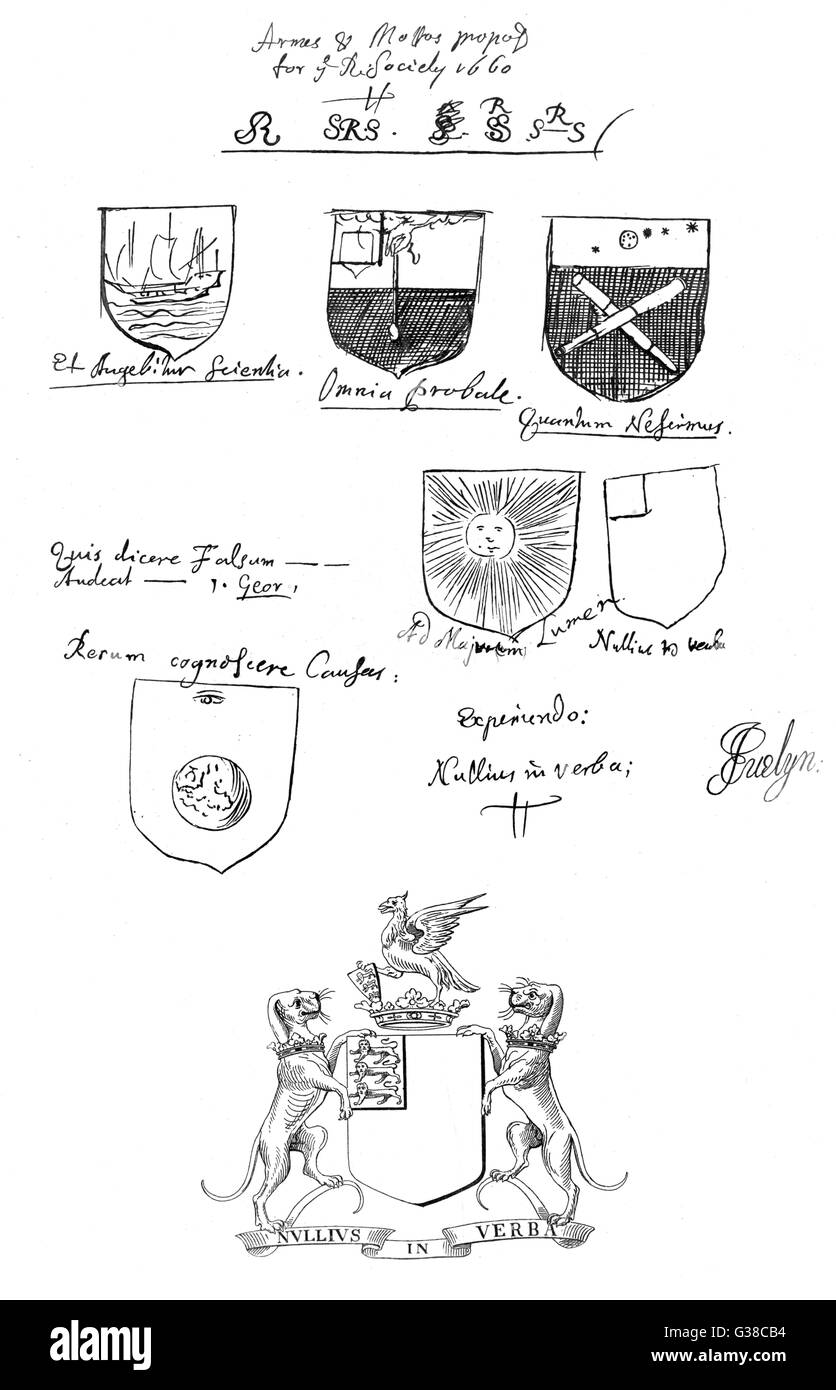 Armes & Mottos propos'd
for yᵉ R: Society 1660
R SRS. R SS S R S
Et Augebitur Scientia.
Omnia probate.
Quantum Nescimus.
Quis dicere Falsum
Audeat 1. Geor,
Ad Majorem Lumen
Nullius in verba
Rerum cognoscere Causas:
Experiendo:
Nullius in verba;
JEvelyn:
NVLLIVS IN VERBA
alamy
Image ID: G38CB4
www.alamy.com